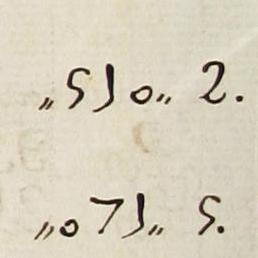 „510„ 2.
„071„ 5.